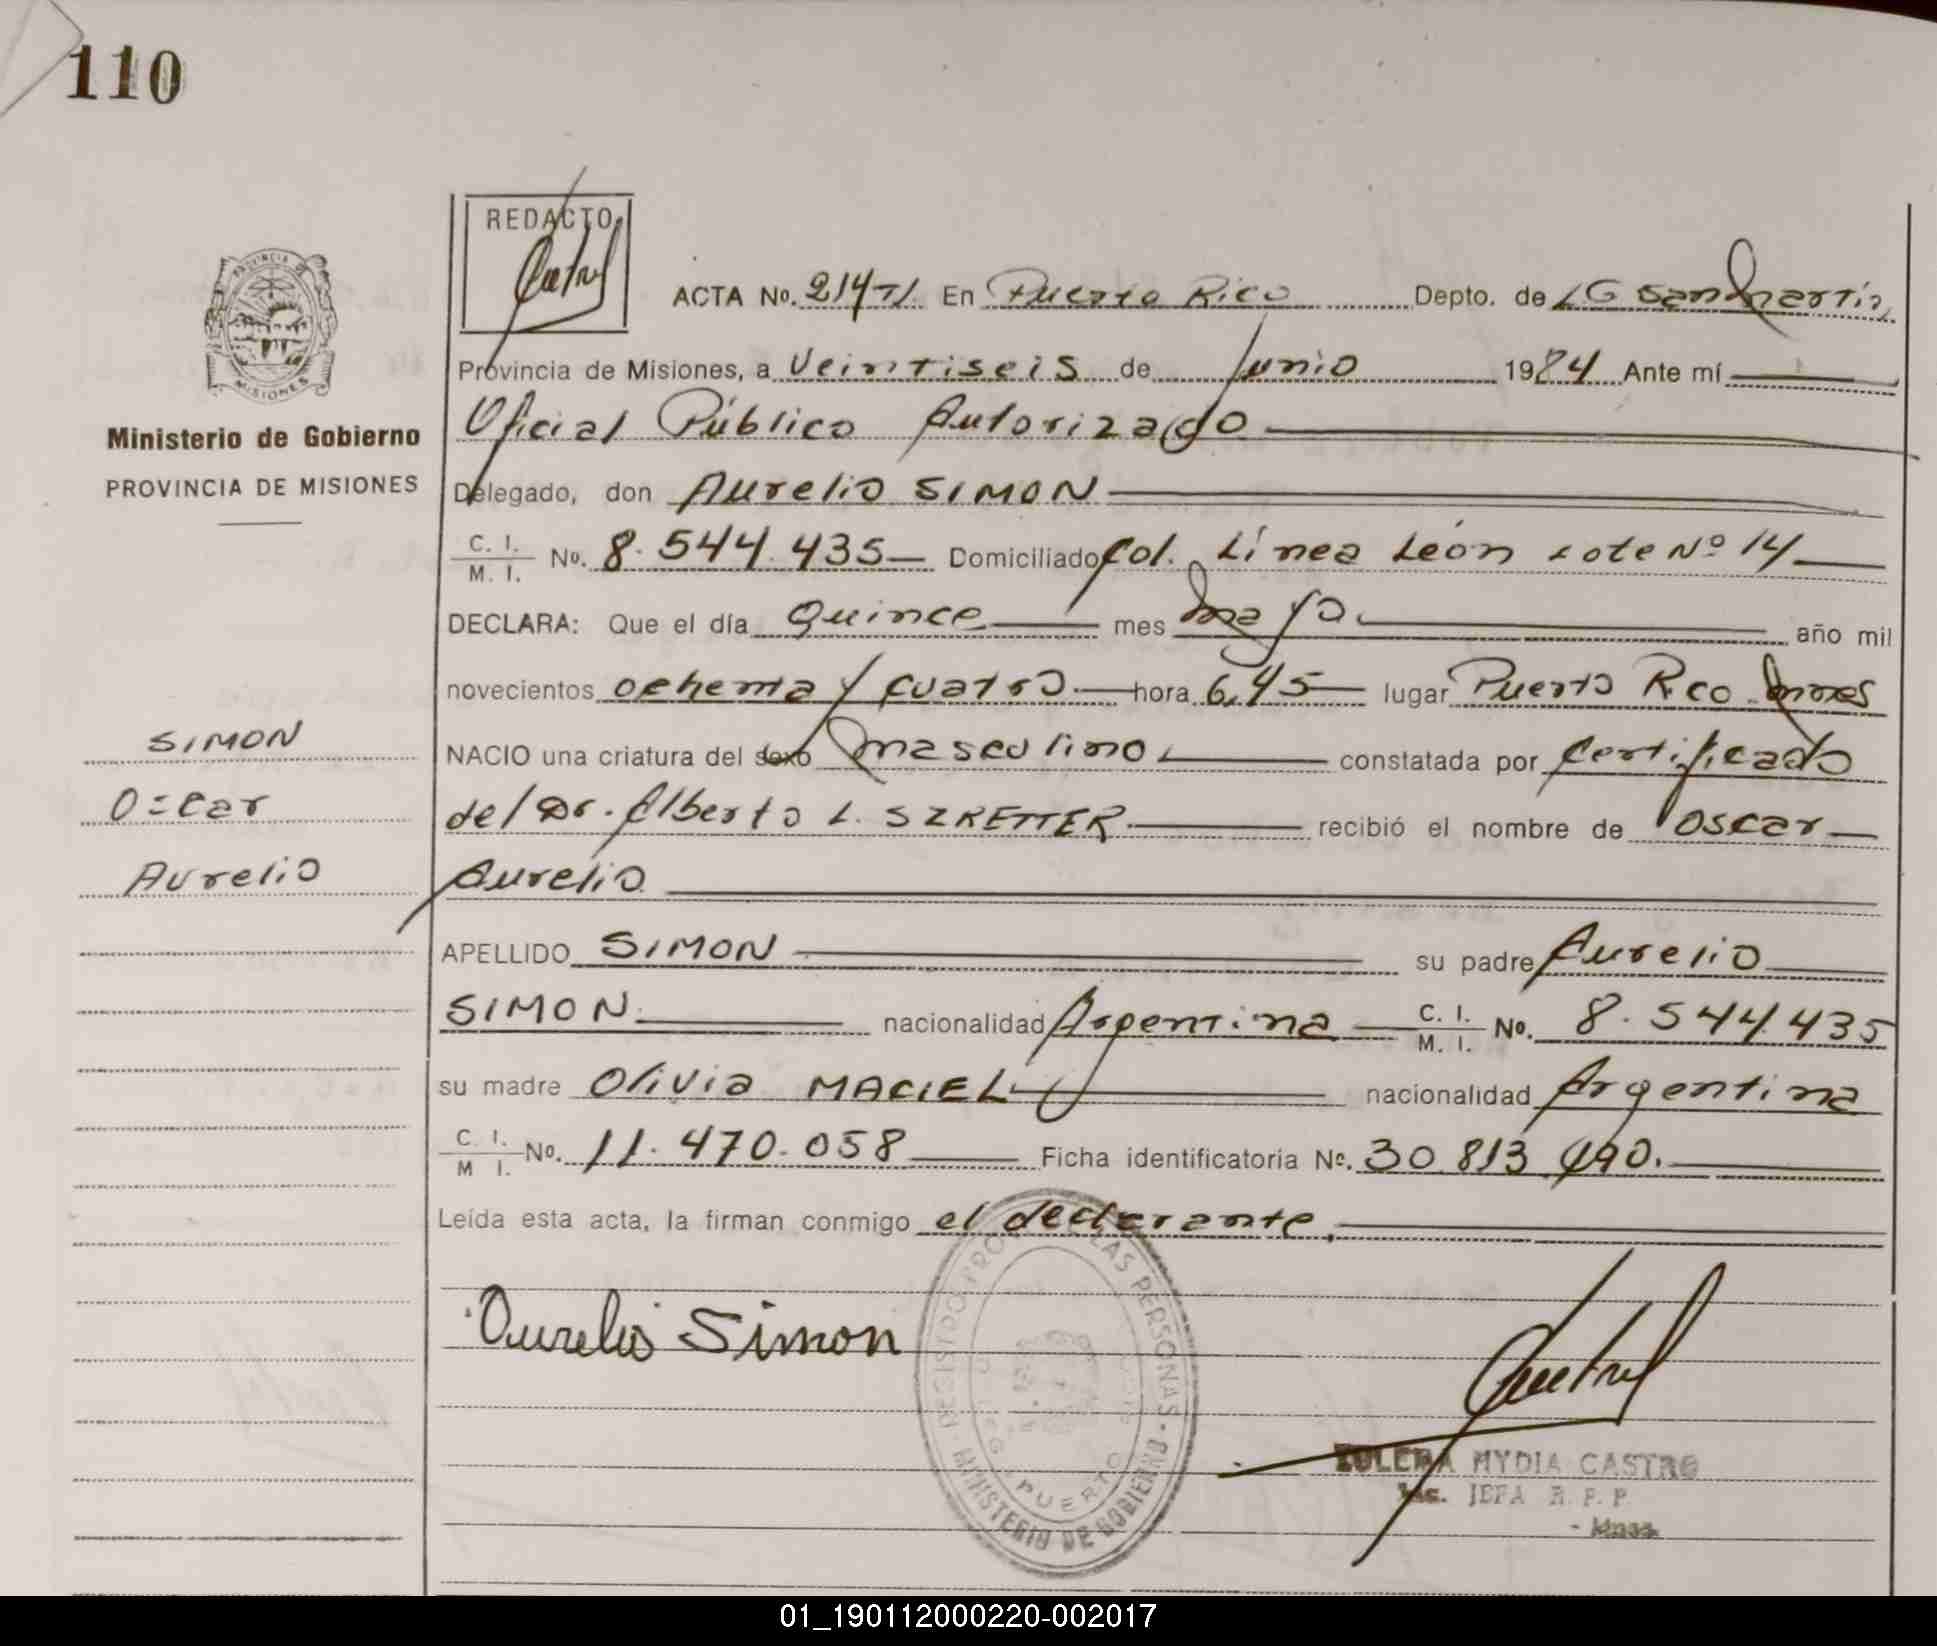 110
REDACTO
ACTA No. 214 TI. En Puerto Rico Depto. de L G San Martín
PROVINCIA DE MISIONES
Provincia de Misiones, a Veintiseis de Junio 1984 Ante mí
Oficial Público Autorizado
Ministerio de Gobierno
PROVINCIA DE MISIONES
Delegado, don Aurelio SIMON
C. I. / M. I. No. 8.544.435 Domiciliado Col. Línea León Lote Nº 14
DECLARA: Que el día Quince mes mayo año mil
novecientos ochenta y cuatro hora 6,45 lugar Puerto Rico Mnes
SIMON
NACIO una criatura del sexo masculino constatada por Certificado
Oscar
del Dr. Alberto L. SZRETTER recibió el nombre de Oscar
Aurelio
Aurelio
APELLIDO SIMON su padre Aurelio
SIMON nacionalidad Argentina C. I. / M. I. No. 8.544.435
su madre Olivia MACIEL nacionalidad Argentina
C. I. / M I. No. 11.470.058 Ficha identificatoria No. 30.813.490.
Leída esta acta, la firman conmigo el declarante.
Aurelio Simon
LAS PERSONAS · MINISTERIO DE GOBIERNO ·
PUERTO
MYDIA CASTRO
JEFA R. P. P.
- Mnes.
01_190112000220-002017